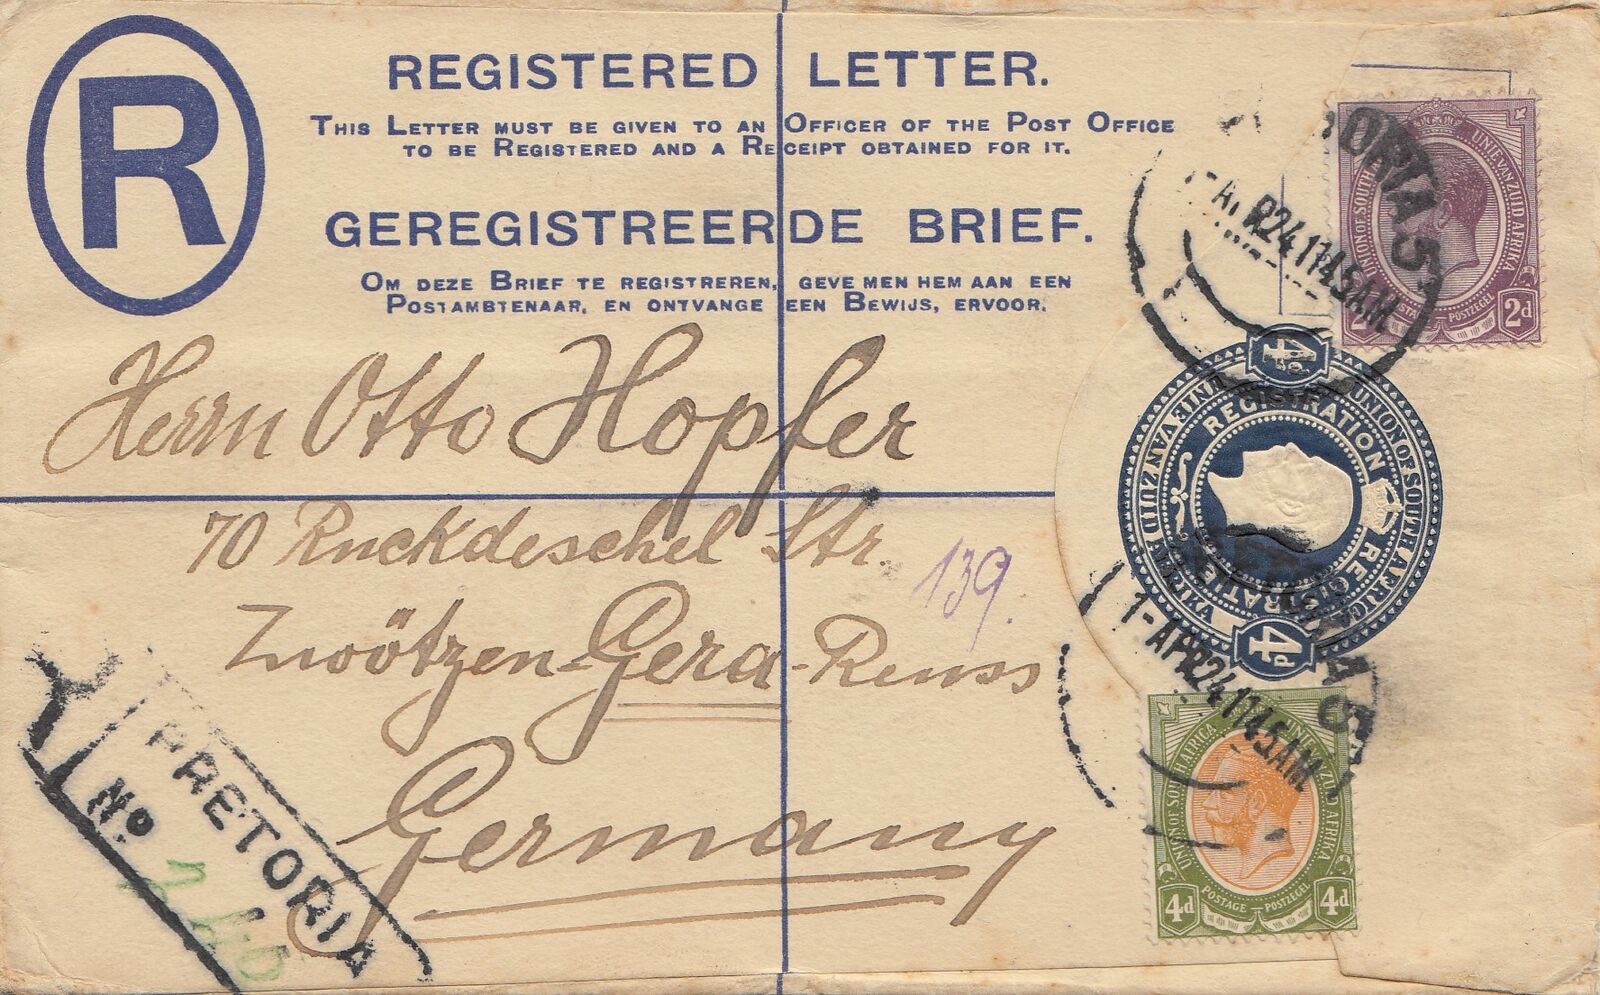 R
REGISTERED LETTER.
THIS LETTER MUST BE GIVEN TO AN OFFICER OF THE POST OFFICE
TO BE REGISTERED AND A RECEIPT OBTAINED FOR IT.
GEREGISTREERDE BRIEF.
OM DEZE BRIEF TE REGISTREREN, GEVE MEN HEM AAN EEN
POSTAMBTENAAR, EN ONTVANGE EEN BEWIJS, ERVOOR.
Herrn Otto Hopfer
70 Ruckdeschel Str.
139.
Zwötzen-Gera-Reuss
Germany
PRETORIA
No.
UNION OF SOUTH UNIE VAN ZUID AFRIKA
POSTZEGEL
2d
APR 24 1145AM
4D
UNIE VAN ZUID AFRIKA UNION OF SOUTH AFRICA
REGISTRATION
4D
1-APR 24 1145AM
UNION OF SOUTH AFRICA UNIE VAN ZUID AFRIKA
POSTAGE POSTZEGEL
4d 4d